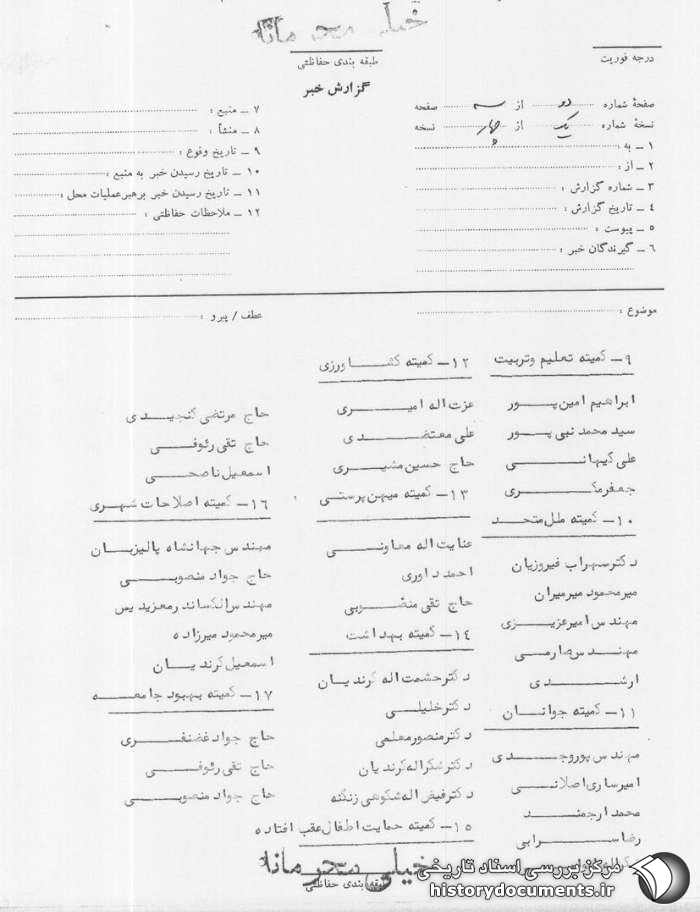 خیلی محرمانه
طبقه بندی حفاظتی
درجه فوریت
گزارش خبر
صفحهٔ شماره دو از سه صفحه
نسخهٔ شماره یک از چهار نسخه
۱ ـ به :
۲ ـ از :
۳ ـ شماره گزارش :
۴ ـ تاریخ گزارش :
۵ ـ پیوست :
۶ ـ گیرندگان خبر :
۷ ـ منبع :
۸ ـ منشأ :
۹ ـ تاریخ وقوع :
۱۰ ـ تاریخ رسیدن خبر به منبع :
۱۱ ـ تاریخ رسیدن خبر برهبرعملیات محل :
۱۲ ـ ملاحظات حفاظتی :
موضوع :
عطف / پیرو :
۹ـ کمیته تعلیم وتربیت
ابراهیم امین پور
سید محمد نبی پور
علی کیهانی
جعفرمکری
۱۰ـ کمیته ملل متحد
دکترسهراب فیروزیان
میرمحمود میرمیران
مهندس امیرعزیزی
مهندس صارمی
ارشدی
۱۱ـ کمیته جوانان
مهندس پوروجدی
امیرساری اصلانی
محمد ارجمند
رضا سرابی
۱۲ـ کمیته کشاورزی
عزت اله امیری
علی معتضدی
حاج حسین مشیری
۱۳ـ کمیته میهن پرستی
عنایت اله معاونی
احمد داوری
حاج تقی منصوبی
۱۴ـ کمیته بهداشت
دکترحشمت اله کرندیان
دکترخلیلی
دکترمنصورمعلمی
دکترشکراله کرندیان
دکترفیض اله شکوهی زنگنه
۱۵ـ کمیته حمایت اطفال عقب افتاده
حاج مرتضی گنجیدی
حاج تقی رئوفی
اسمعیل ناصحی
۱۶ـ کمیته اصلاحات شهری
مهندس جهانشاه پالیزبان
حاج جواد منصوبی
مهندس الکساندرمعزیدیس
میرمحمود میرزاده
اسمعیل کرندیان
۱۷ـ کمیته بهبود جامعه
حاج جواد غضنفری
حاج تقی رئوفی
حاج جواد منصوبی
خیلی محرمانه
طبقه بندی حفاظتی
مرکز بررسی اسناد تاریخی
historydocuments.ir